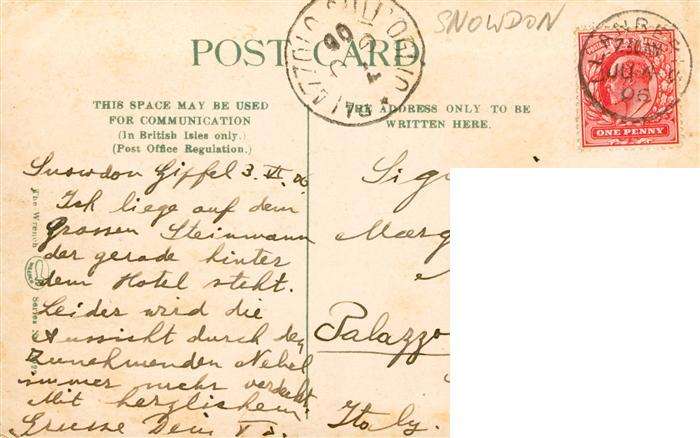 SNOWDON
POST CARD
THIS SPACE MAY BE USED
FOR COMMUNICATION
(In British Isles only.)
(Post Office Regulation.)
THE ADDRESS ONLY TO BE
WRITTEN HERE.
ONE PENNY
Snowdon Gipfel 3. VI. 06
Ich liege auf dem
grossen Steinmann
der gerade hinter
dem Hotel steht.
Leider wird die
Aussicht durch den
Zunehmenden Nebel
immer mehr verdeckt.
Mit herzlichem
Grusse Dein
The Wrench
Series
Palazzo
Italy.